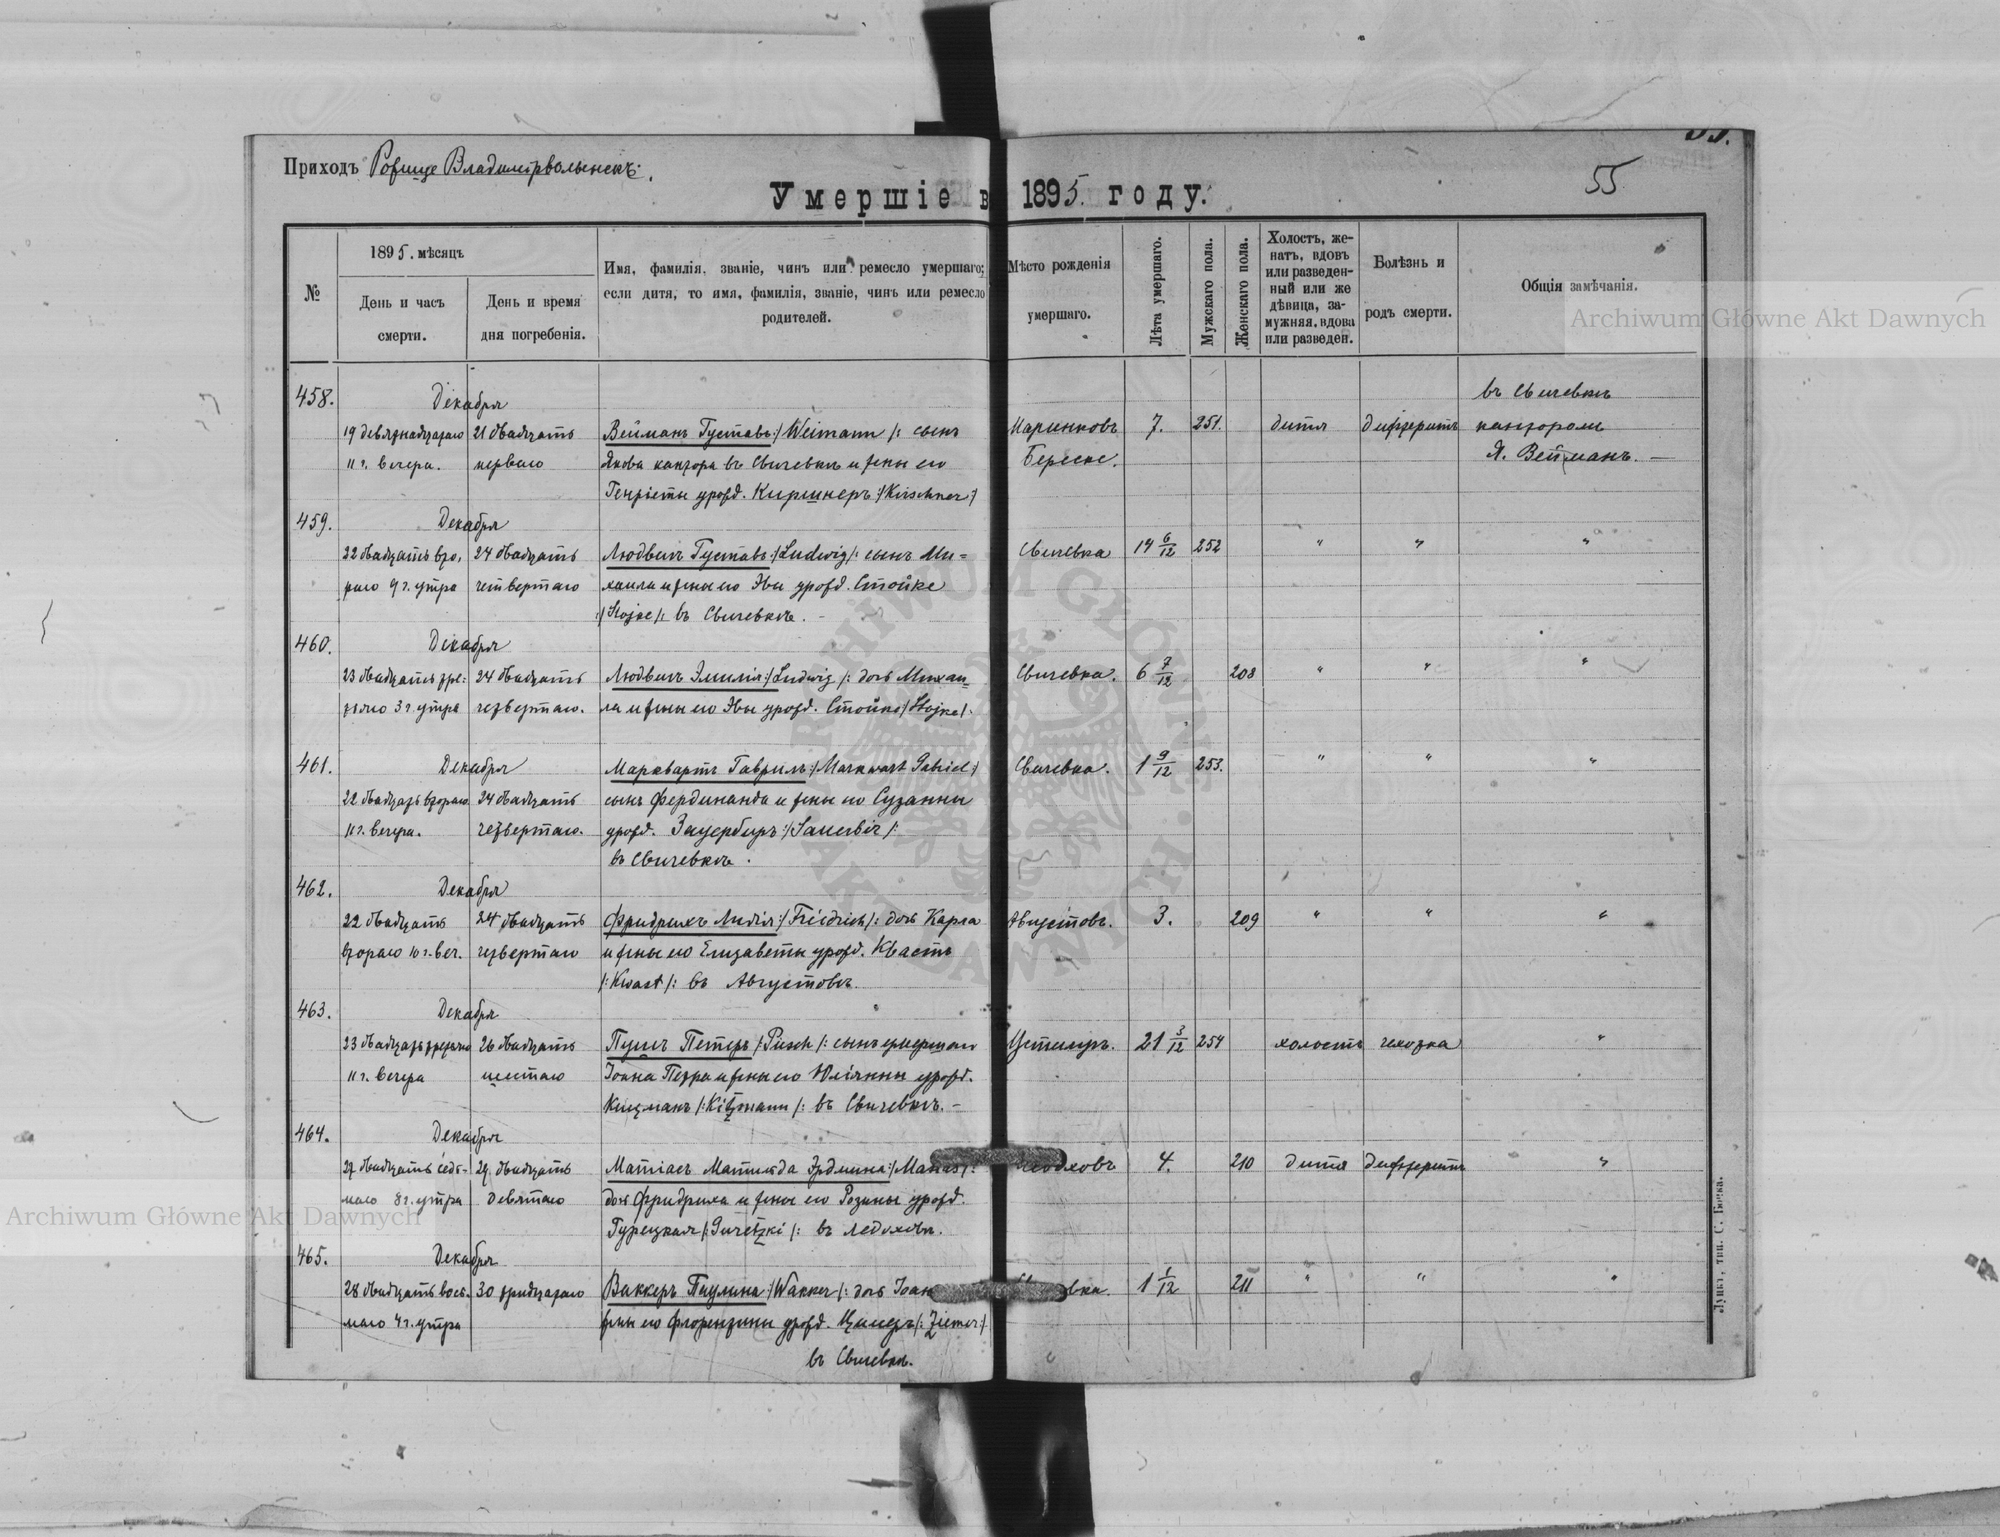 55.
Приходъ Рожище Владимірволынскъ.
55
Умершіе въ 1895. году.
№
1895. мѣсяцъ
День и часъ смерти.
День и время дня погребенія.
Имя, фамилія, званіе, чинъ или ремесло умершаго;
если дитя, то имя, фамилія, званіе, чинъ или ремесло
родителей.
Мѣсто рожденія
умершаго.
Лѣта умершаго.
Мужскаго пола.
Женскаго пола.
Холостъ, же-
натъ, вдовъ
или разведен-
ный или же
дѣвица, за-
мужняя, вдова
или разведен.
Болѣзнь и
родъ смерти.
Общія замѣчанія.
Archiwum Główne Akt Dawnych
458. Декабря въ Свичевкѣ
19 девятнадцатаго 21 двадцать Вейманъ Густавъ :/Weimann/: сынъ Маринковъ 7. 251. дитя дифтеритъ канторомъ
11 г. вечера. перваго Якова кантора въ Свичевкѣ и жены его Береске. Я. Вейманъ. —
Генріеты урожд. Киршнеръ :/Kirschner/
459. Декабря
22 двадцать вто, 24 двадцать Людвигъ Густавъ :/Ludwig/: сынъ Ми= Свичевка 14 6/12 252 " " "
раго 9 г. утра четвертаго хаила и жены его Эвы урожд. Стойке
:/Stojke/: въ Свичевкѣ. -
460. Декабря
23 двадцать тре: 24 двадцать Людвигъ Эмилія :/Ludwig/: дочь Михаи= Свичевка. 6 7/12 208 " " "
тяго 3 г. утра четвертаго. ла и жены его Эвы урожд. Стойке /Stojke/.
461. Декабря Марквартъ Гавриль :/Markwart Gabriel/ Свичевка. 1 9/12 253. " " "
22 двадцать втораго 24 двадцать сынъ Фердинанда и жены его Сузанны
11 г. вечера. четвертаго. урожд. Зауербиръ :/Sauerbir/:
въ Свичевкѣ.
462. Декабря
22 двадцать 24 двадцать Фридрихъ Лидія :/Friedrich/: дочь Карла Августовъ. 3. 209 " " "
втораго 10 г. веч. четвертаго и жены его Елизаветы урожд. Квастъ
/:Kwast/: въ Августовѣ.
463. Декабря
23 двадцать третьяго 26 двадцать Пушъ Петеръ /Pusch/: сынъ умершаго Устилугъ. 21 3/12 254 холостъ чахотка "
11 г. вечера шестаго Іоана Петра и жены его Юліянны урожд.
Кицманъ /:Kitzmann/: въ Свичевкѣ. -
464. Декабря
27 двадцать седь- 29 двадцать Матіасъ Матильда Эрдмина 4. 210 дитя дифтеритъ "
маго 8 г. утра девятаго дочь Фридриха и жены его Розины урожд.
Гурецкая /:Guretzki/: въ Ледоховѣ.
465. Декабря
28 двадцать вось. 30 тридцатаго Ваккеръ Паулина :/Wakker/: дочь 1 1/12 211 " " "
маго 4 г. утра жены его Флорентины урожд. Цимеръ /:Ziemer/
въ Свичевкѣ.
Луцкъ, тип. С. Бонка.
Archiwum Główne Akt Dawnych
ARCHIWUM GŁÓWNE AKT DAWNYCH